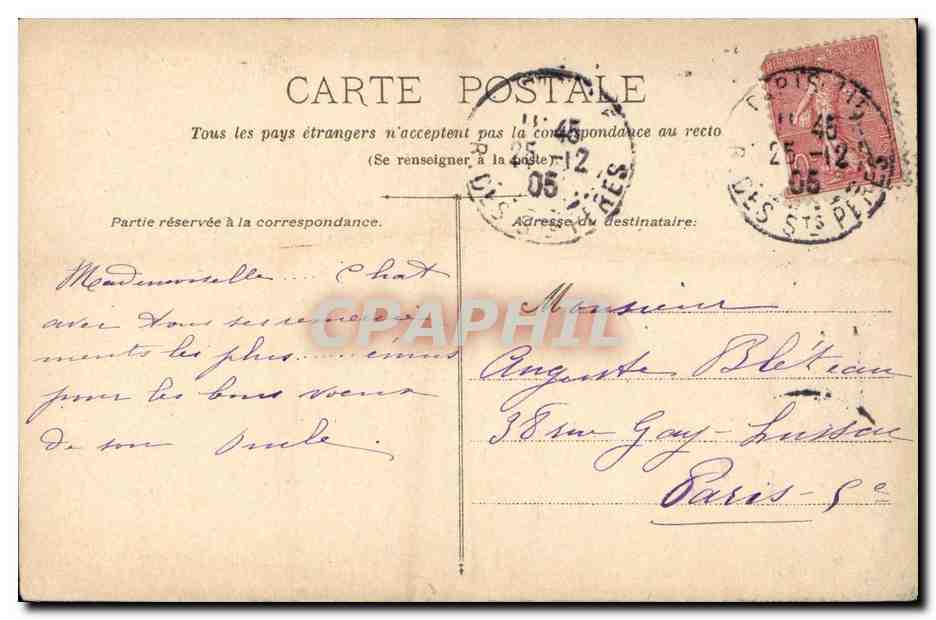 CARTE POSTALE
Tous les pays étrangers n'acceptent pas la correspondance au recto
(Se renseigner à la poste)
Partie réservée à la correspondance.
Adresse du destinataire:
45
25 - 12
05
R. DES STS PÈRES
PARIS
45
25 - 12
05
R. DES STS PÈRES
Mademoiselle .... Chat
avec tous ses remercie-
ments les plus ..... émus
pour les bons voeux
de son Oncle.
Monsieur
Auguste Bléteau
38 rue Gay-Lussac
Paris - 5e
CPAPHIL